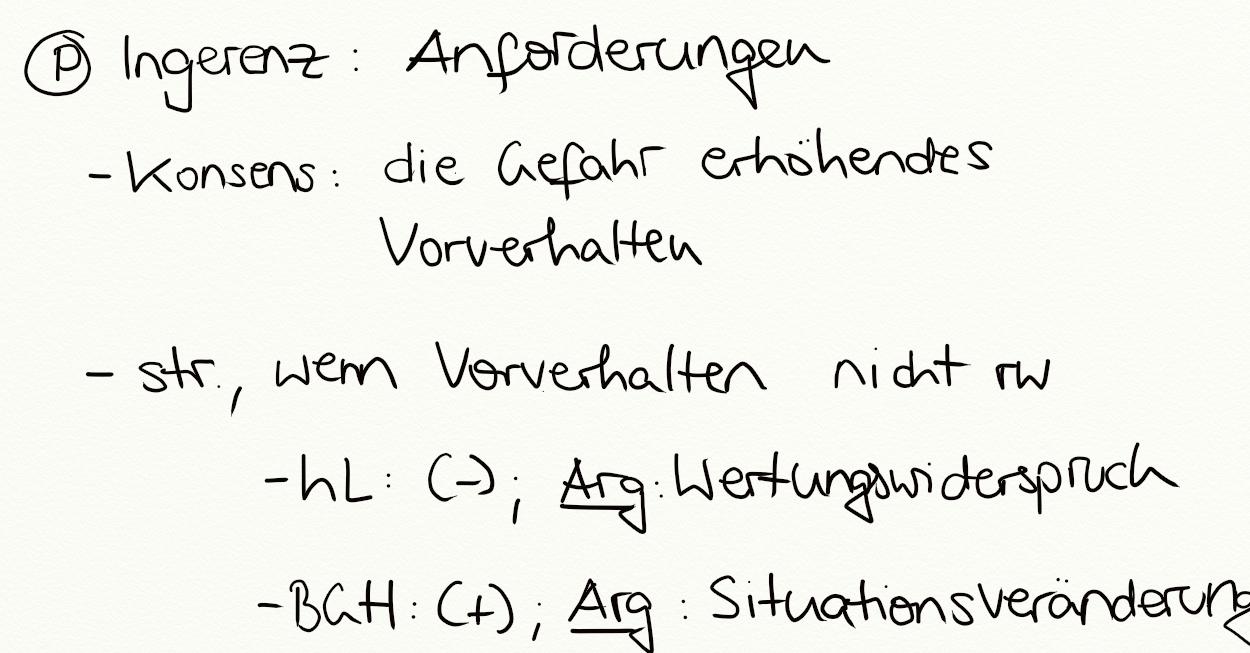 Ⓟ Ingerenz: Anforderungen
- Konsens: die Gefahr erhöhendes
Vorverhalten
- str., wenn Vorverhalten nicht rw
- hL: (-); Arg: Wertungswiderspruch
- BGH: (+); Arg: Situationsveränderung